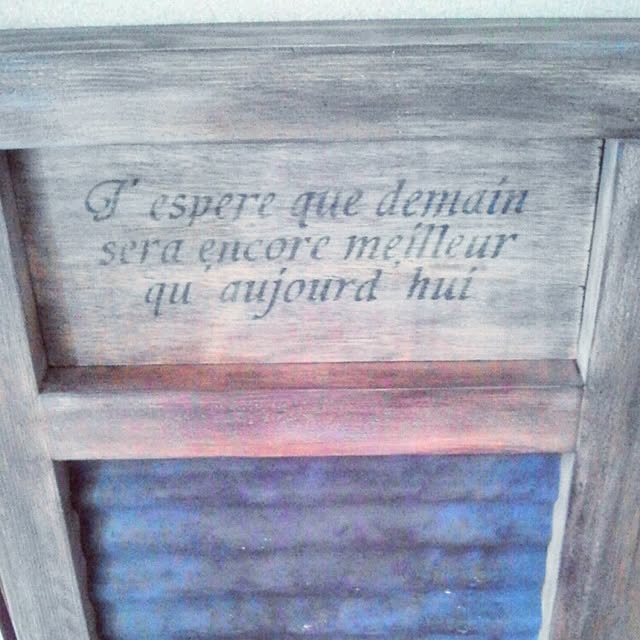 J' espere que demain
sera encore meilleur
qu aujourd hui